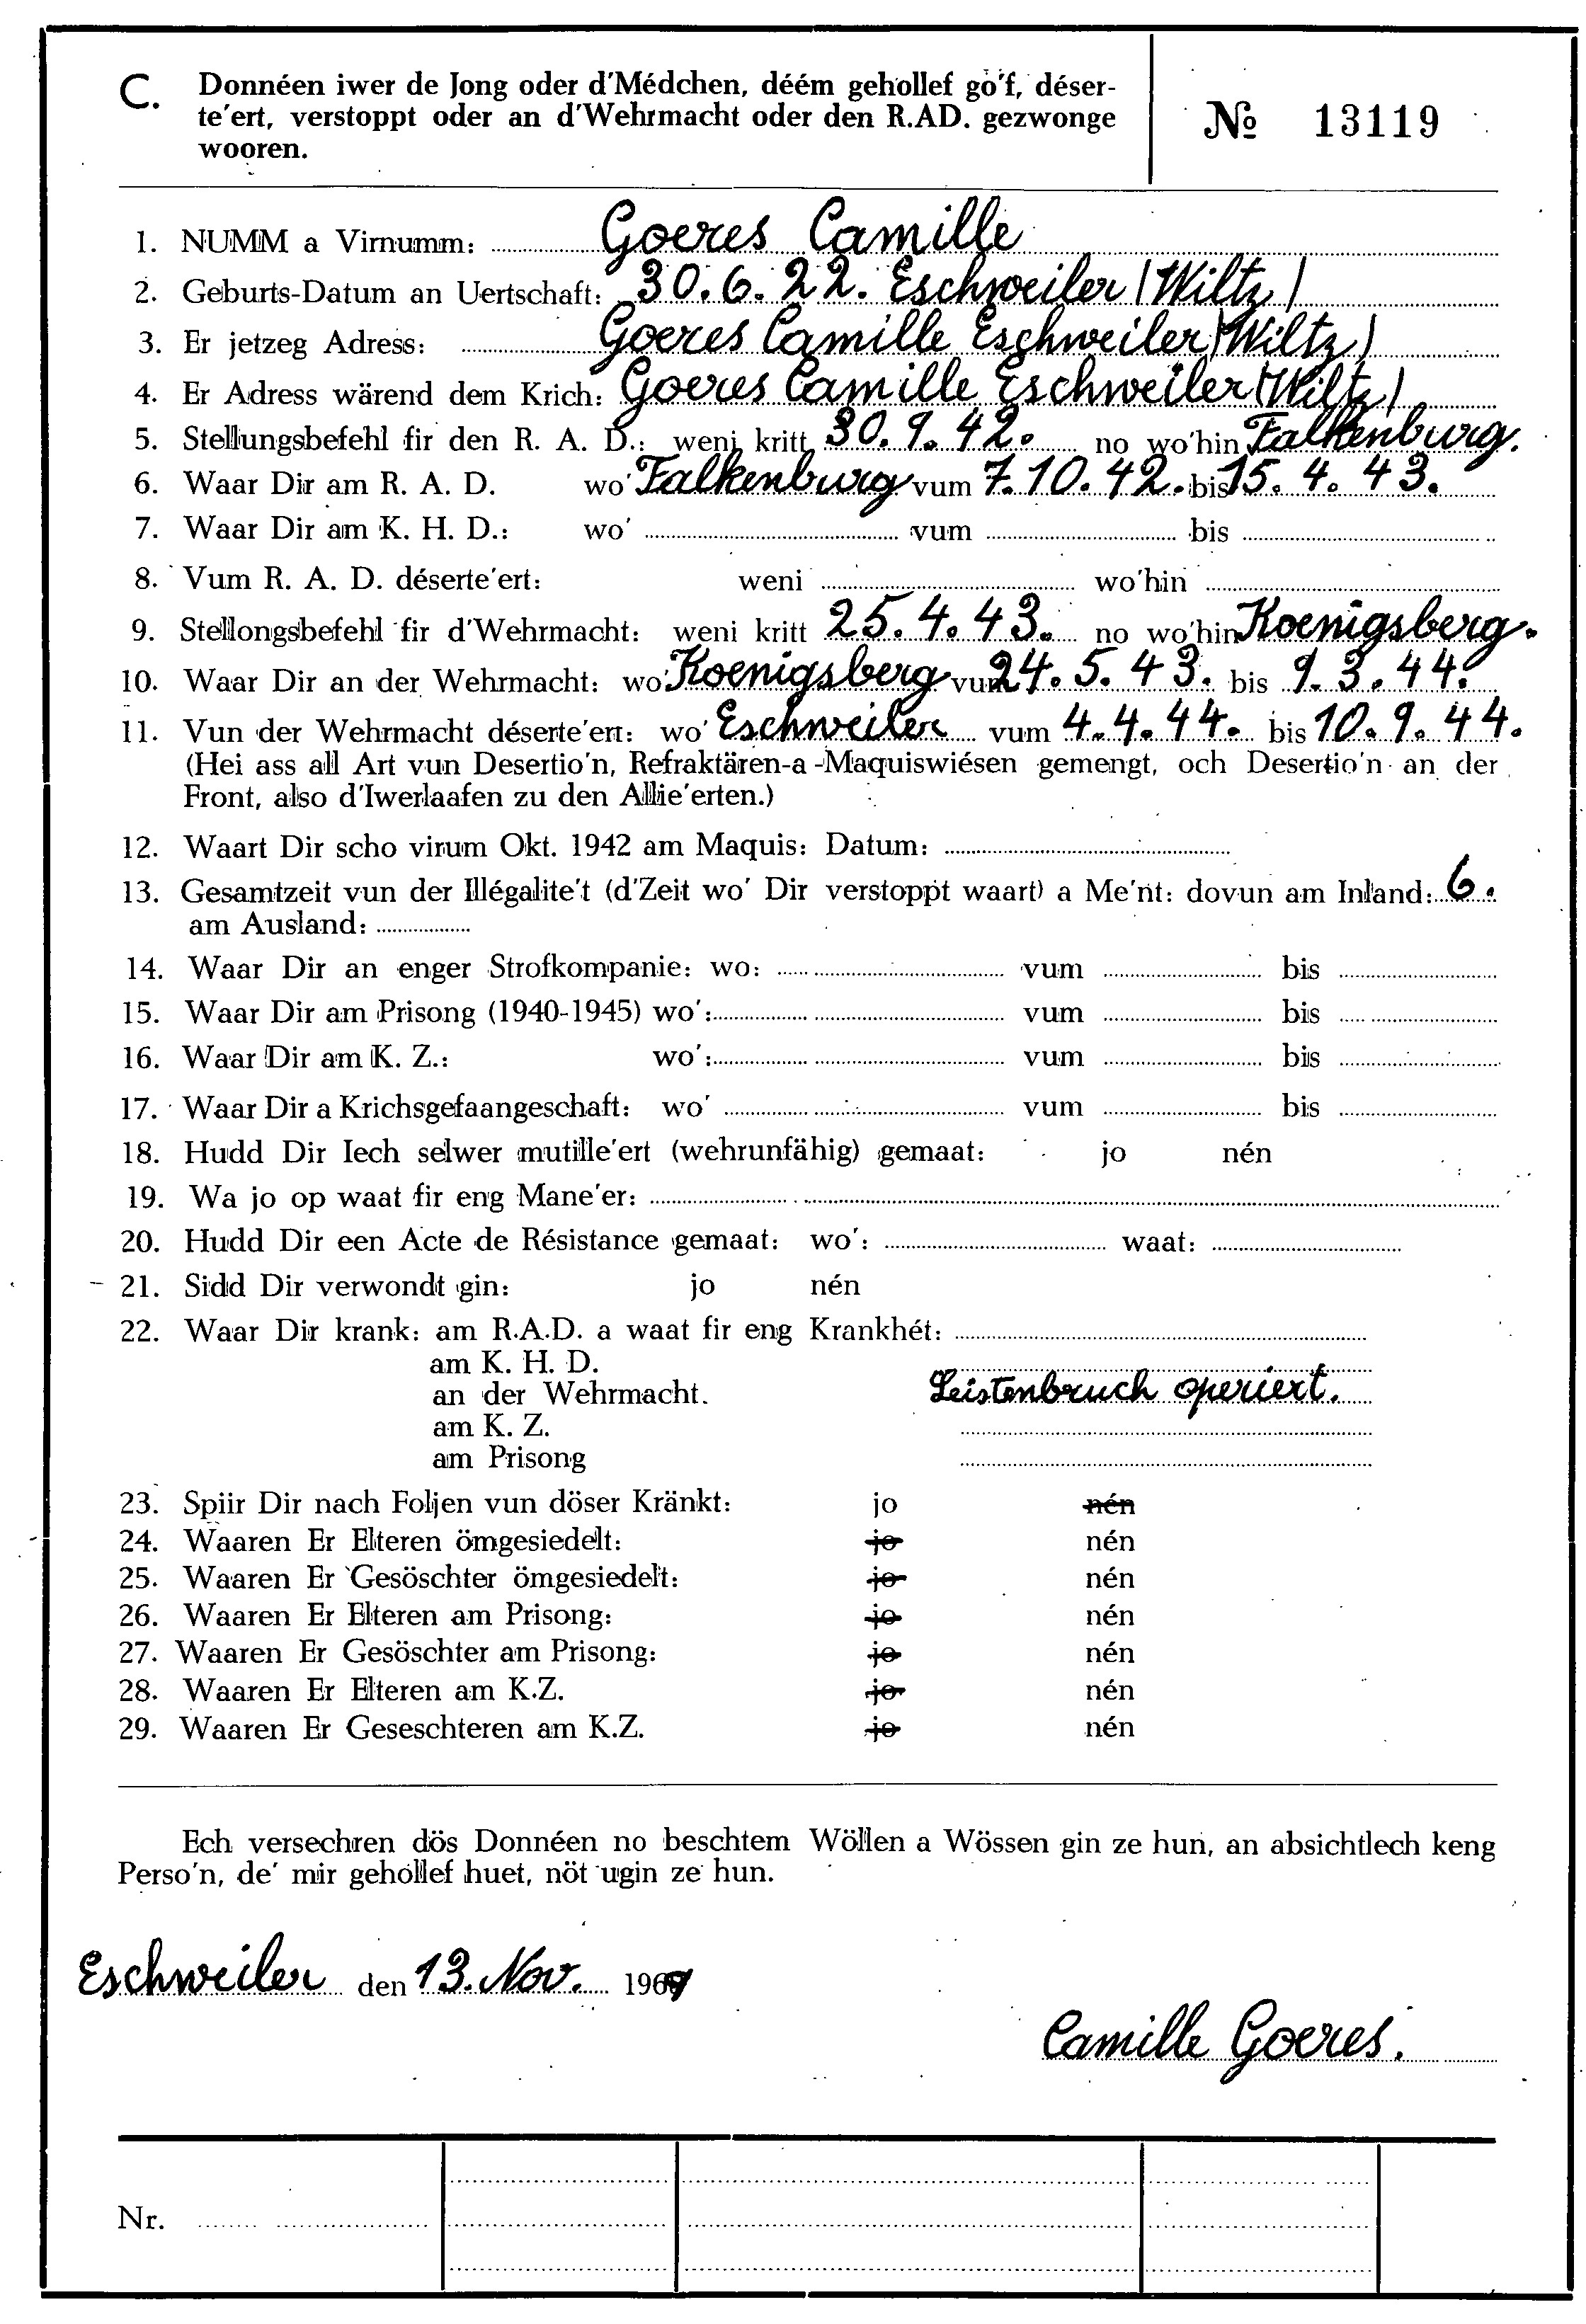 C. Donnéen iwer de Jong oder d'Médchen, déém gehollef go'f, déser-
te'ert, verstoppt oder an d'Wehrmacht oder den R.AD. gezwonge
wooren.
№ 13119
1. NUMM a Virnumm: Goeres Camille
2. Geburts-Datum an Uertschaft: 30.6.22. Eschweiler (Wiltz)
3. Er jetzeg Adress: Goeres Camille Eschweiler (Wiltz)
4. Er Adress wärend dem Krich: Goeres Camille Eschweiler (Wiltz)
5. Stellungsbefehl fir den R. A. D.: weni kritt 30.9.42. no wo'hin Falkenburg.
6. Waar Dir am R. A. D. wo' Falkenburg vum 7.10.42. bis 15.4.43.
7. Waar Dir am K. H. D.: wo' vum bis
8. Vum R. A. D. déserte'ert: weni wo'hin
9. Stellongsbefehl fir d'Wehrmacht: weni kritt 25.4.43. no wo'hin Koenigsberg.
10. Waar Dir an der Wehrmacht: wo' Koenigsberg vum 24.5.43. bis 9.3.44.
11. Vun der Wehrmacht déserte'ert: wo' Eschweiler vum 4.4.44. bis 10.9.44.
(Hei ass all Art vun Desertio'n, Refraktären-a -Maquiswiésen gemengt, och Desertio'n an der
Front, also d'Iwerlaafen zu den Allie'erten.)
12. Waart Dir scho virum Okt. 1942 am Maquis: Datum:
13. Gesamtzeit vun der Illégalite't (d'Zeit wo' Dir verstoppt waart) a Me'nt: dovun am Inland: 6.
am Ausland:
14. Waar Dir an enger Strofkompanie: wo: vum bis
15. Waar Dir am Prisong (1940-1945) wo': vum bis
16. Waar Dir am K. Z.: wo': vum bis
17. Waar Dir a Krichsgefaangeschaft: wo' vum bis
18. Hudd Dir Iech selwer mutille'ert (wehrunfähig) gemaat: jo nén
19. Wa jo op waat fir eng Mane'er:
20. Hudd Dir een Acte de Résistance gemaat: wo': waat:
21. Sidd Dir verwondt gin: jo nén
22. Waar Dir krank: am R.A.D. a waat fir eng Krankhét:
am K. H. D.
an der Wehrmacht. Leistenbruch operiert.
am K. Z.
am Prisong
23. Spiir Dir nach Foljen vun döser Kränkt: jo nén
24. Waaren Er Elteren ömgesiedelt: jo nén
25. Waaren Er Gesöschter ömgesiedelt: jo nén
26. Waaren Er Elteren am Prisong: jo nén
27. Waaren Er Gesöschter am Prisong: jo nén
28. Waaren Er Elteren am K.Z. jo nén
29. Waaren Er Geseschteren am K.Z. jo nén
Ech versechren dös Donnéen no beschtem Wöllen a Wössen gin ze hun, an absichtlech keng
Perso'n, de' mir gehollef huet, nöt ugin ze hun.
Eschweiler den 13. Nov. 1969
Camille Goeres.
Nr.